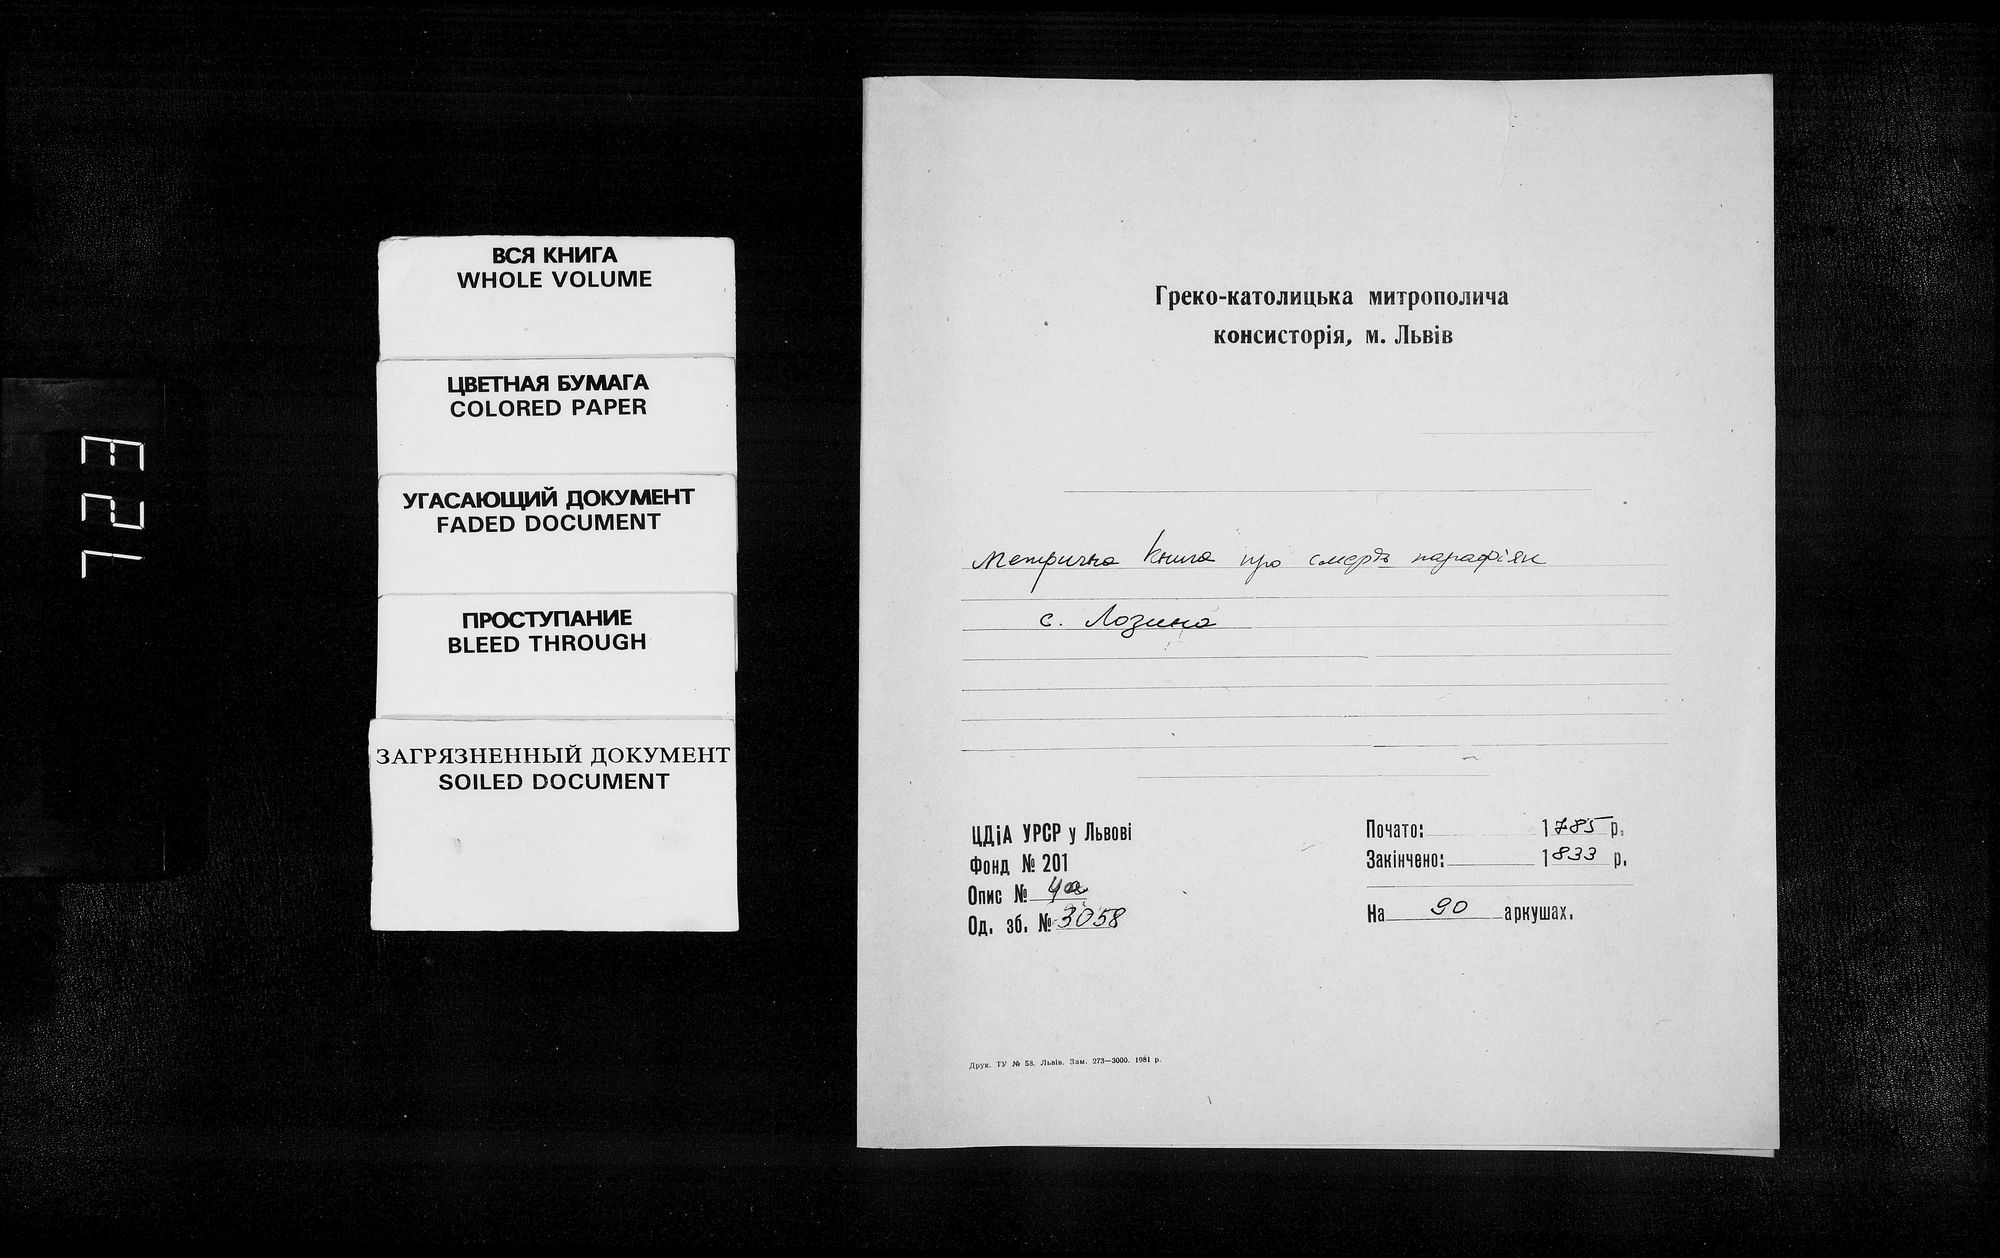 ВСЯ КНИГА
WHOLE VOLUME
ЦВЕТНАЯ БУМАГА
COLORED PAPER
УГАСАЮЩИЙ ДОКУМЕНТ
FADED DOCUMENT
ПРОСТУПАНИЕ
BLEED THROUGH
ЗАГРЯЗНЕННЫЙ ДОКУМЕНТ
SOILED DOCUMENT
Греко-католицька митрополича
консисторія, м. Львів
Метрична книга про смерть парафіян
с. Лозина
ЦДіА УРСР у Львові
Фонд № 201
Опис № 4а
Од. зб. № 3058
Почато: 1785 р.
Закінчено: 1833 р.
На 90 аркушах.
Друк. ТУ № 58. Львів. Зам. 273—3000. 1981 р.